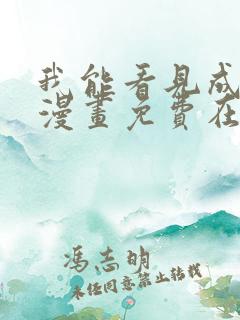 我能看見成
漫畫免費在
馮志明
未經同意禁止轉載